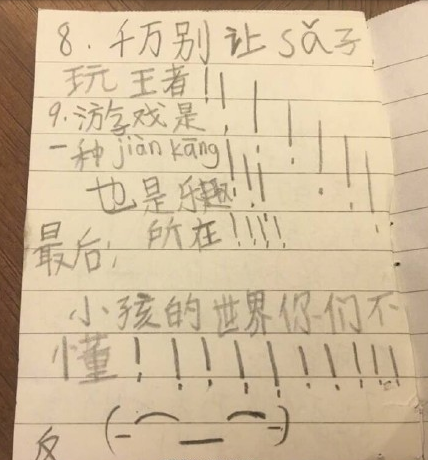 8.千万别让sǎ子
玩王者!!!!!!!!
9.游学戏是
一种jiàn kāng!!!
也是乐趣!!!
所在!!!!!
最后;
小孩的世界你们不
懂!!!!!!!!!!!
反